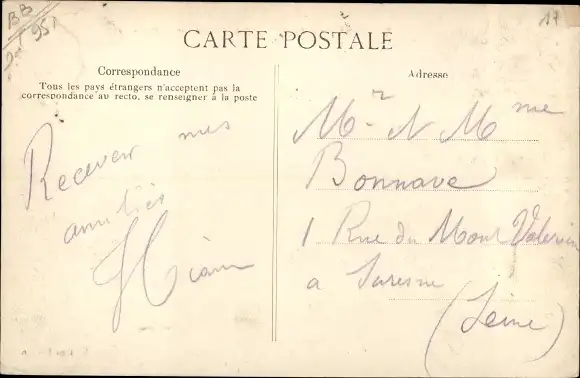 BB
95
17
CARTE POSTALE
Correspondance
Tous les pays étrangers n'acceptent pas la
correspondance au recto, se renseigner à la poste
Recever mes
amitiés
Adresse
Mr N Mme
Bonnave
1 Rue du Mont Valerien
a Suresne
(Seine)